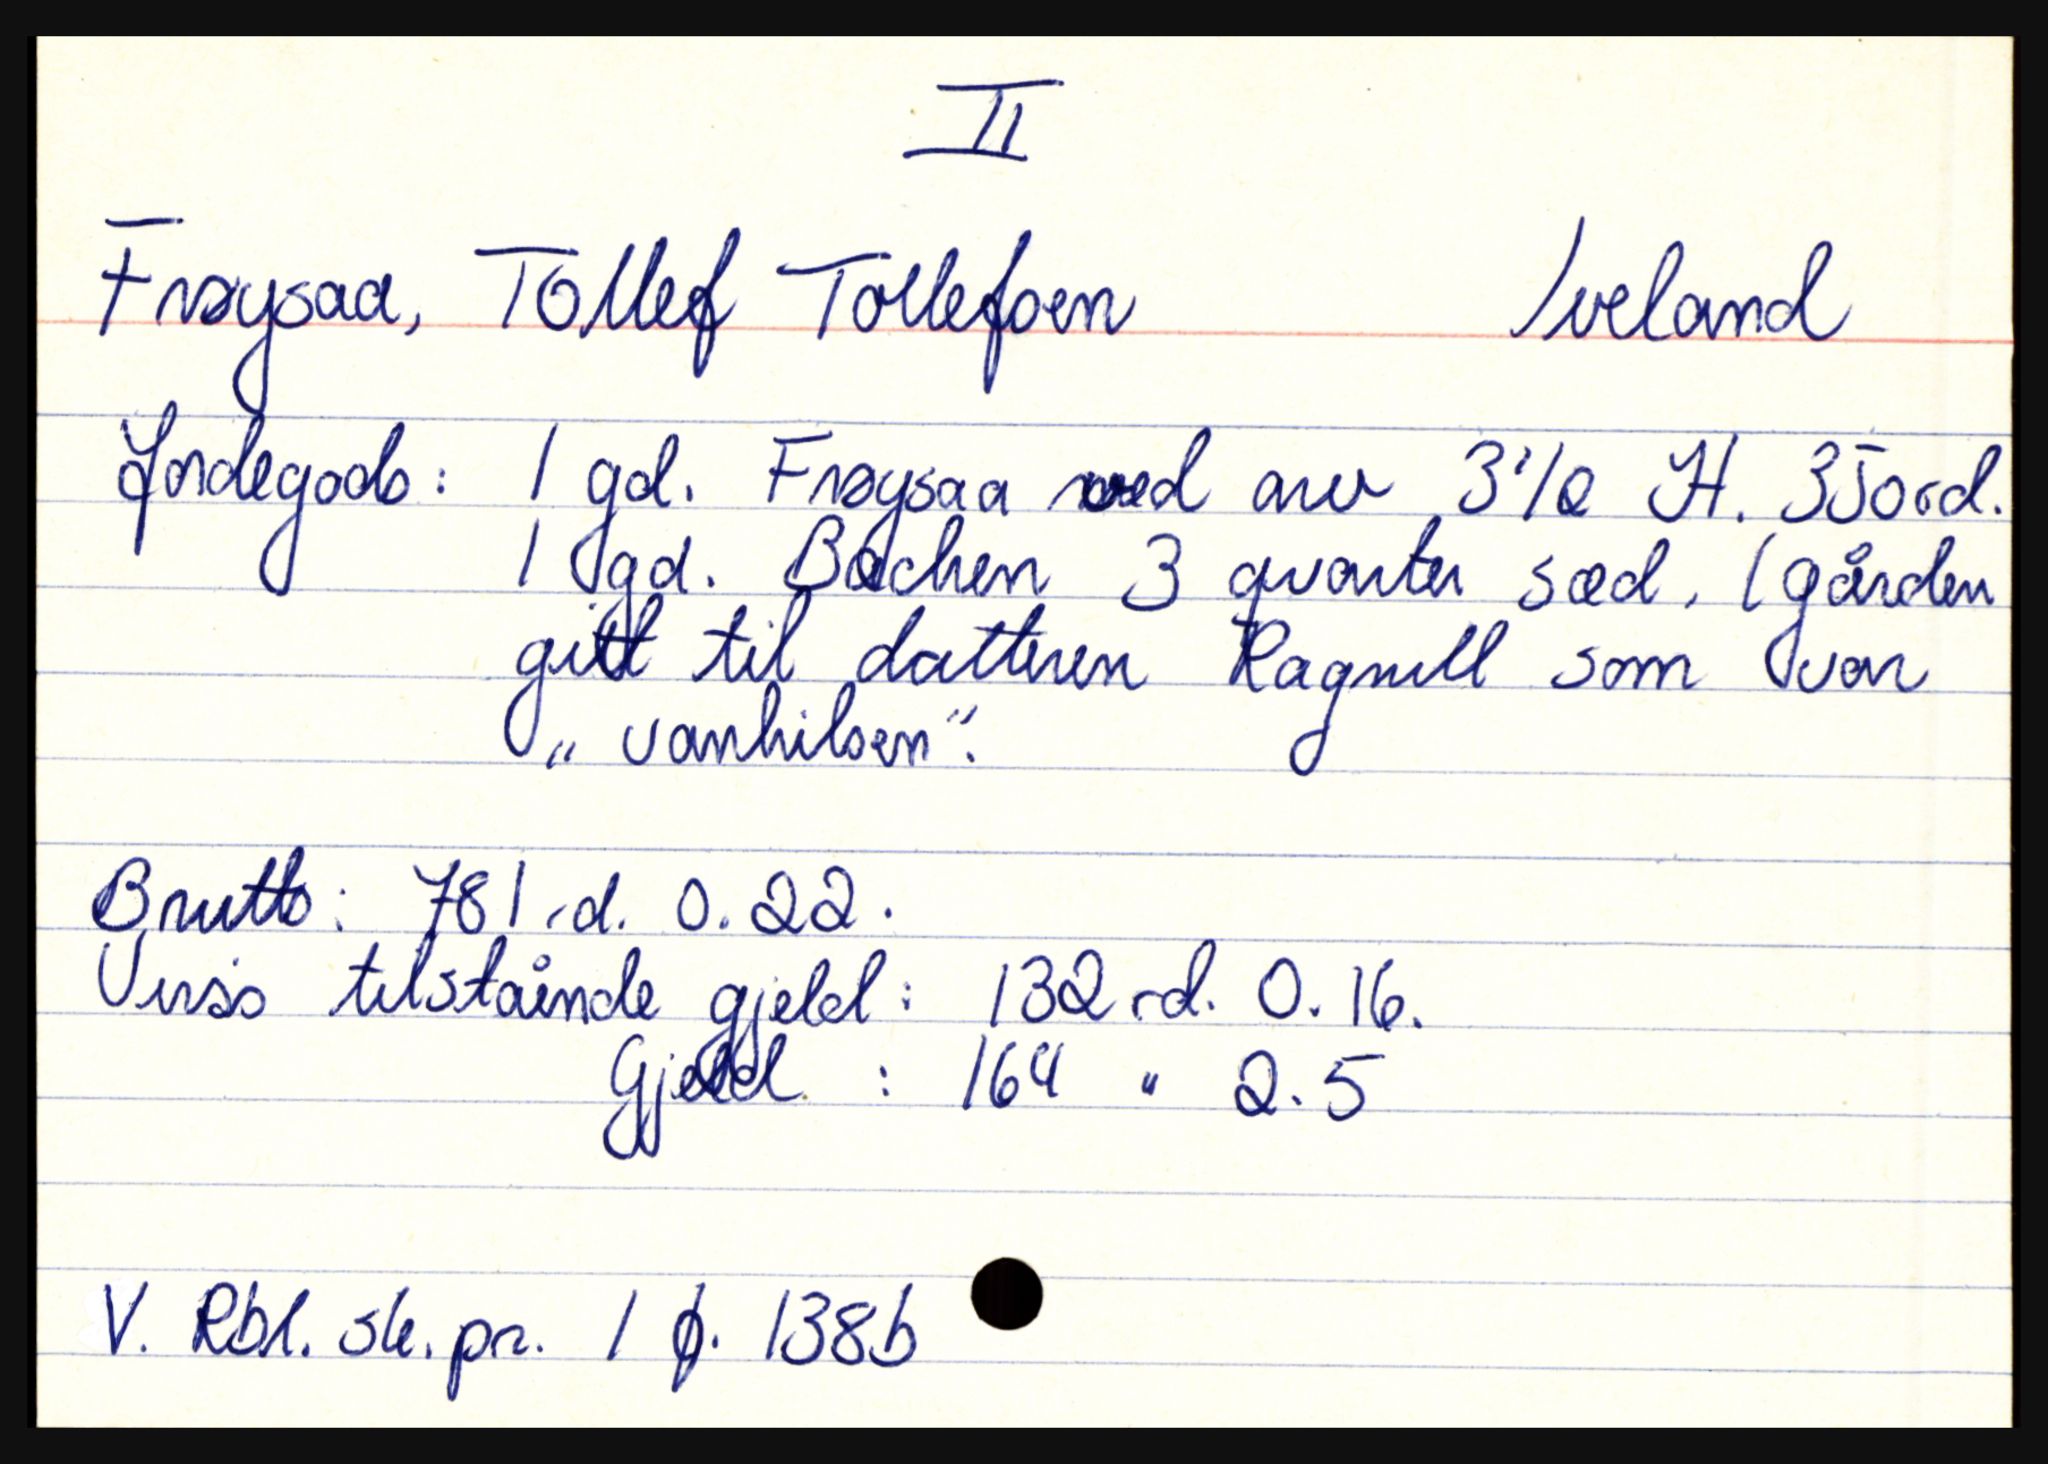 II
Frøysaa, Tollef Tollefsen Iveland
Jordegods: 1 gd. Frøysaa ved arv 3 1/2 H. 350 rd.
1 gd. Bachen 3 qvarter sæd. (gården
gitt til datteren Ragnill som var
„vanhilsen".
Brutto: 781 rd. 0. 22.
Viss tilstående gjeld: 132 rd. 0. 16.
Gjeld : 164 " 2. 5
V. Rbl. sk. pr. 1 f. 138b